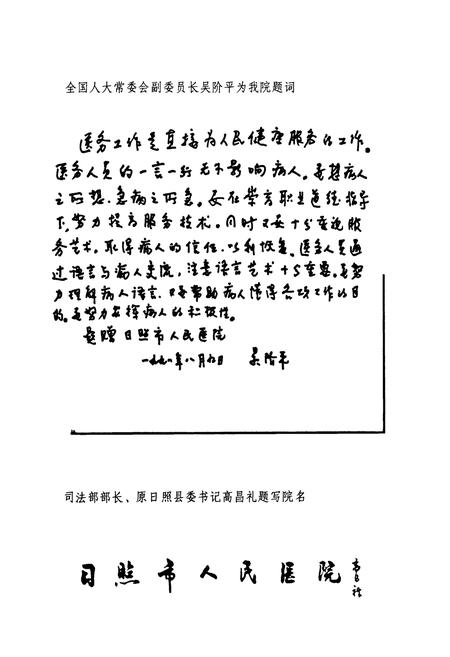 全国人大常委会副委员长吴阶平为我院题词
医务工作是直接为人民健康服务的工作。
医务人员的一言一行无不影响病人。要想病人
之所想、急病之所急。要在崇高职业道德指导
下,努力提高服务技术。同时又要十分重视服
务艺术,取得病人的信任,以利恢复。医务人员通
过语言与病人交流,注意语言艺术十分重要。要努
力理解病人语言,又要帮助病人懂得各项工作的目
的。要努力发挥病人的积极性。
题赠日照市人民医院
一九九八年八月九日 吴阶平
司法部部长、原日照县委书记高昌礼题写院名
日照市人民医院 高昌礼